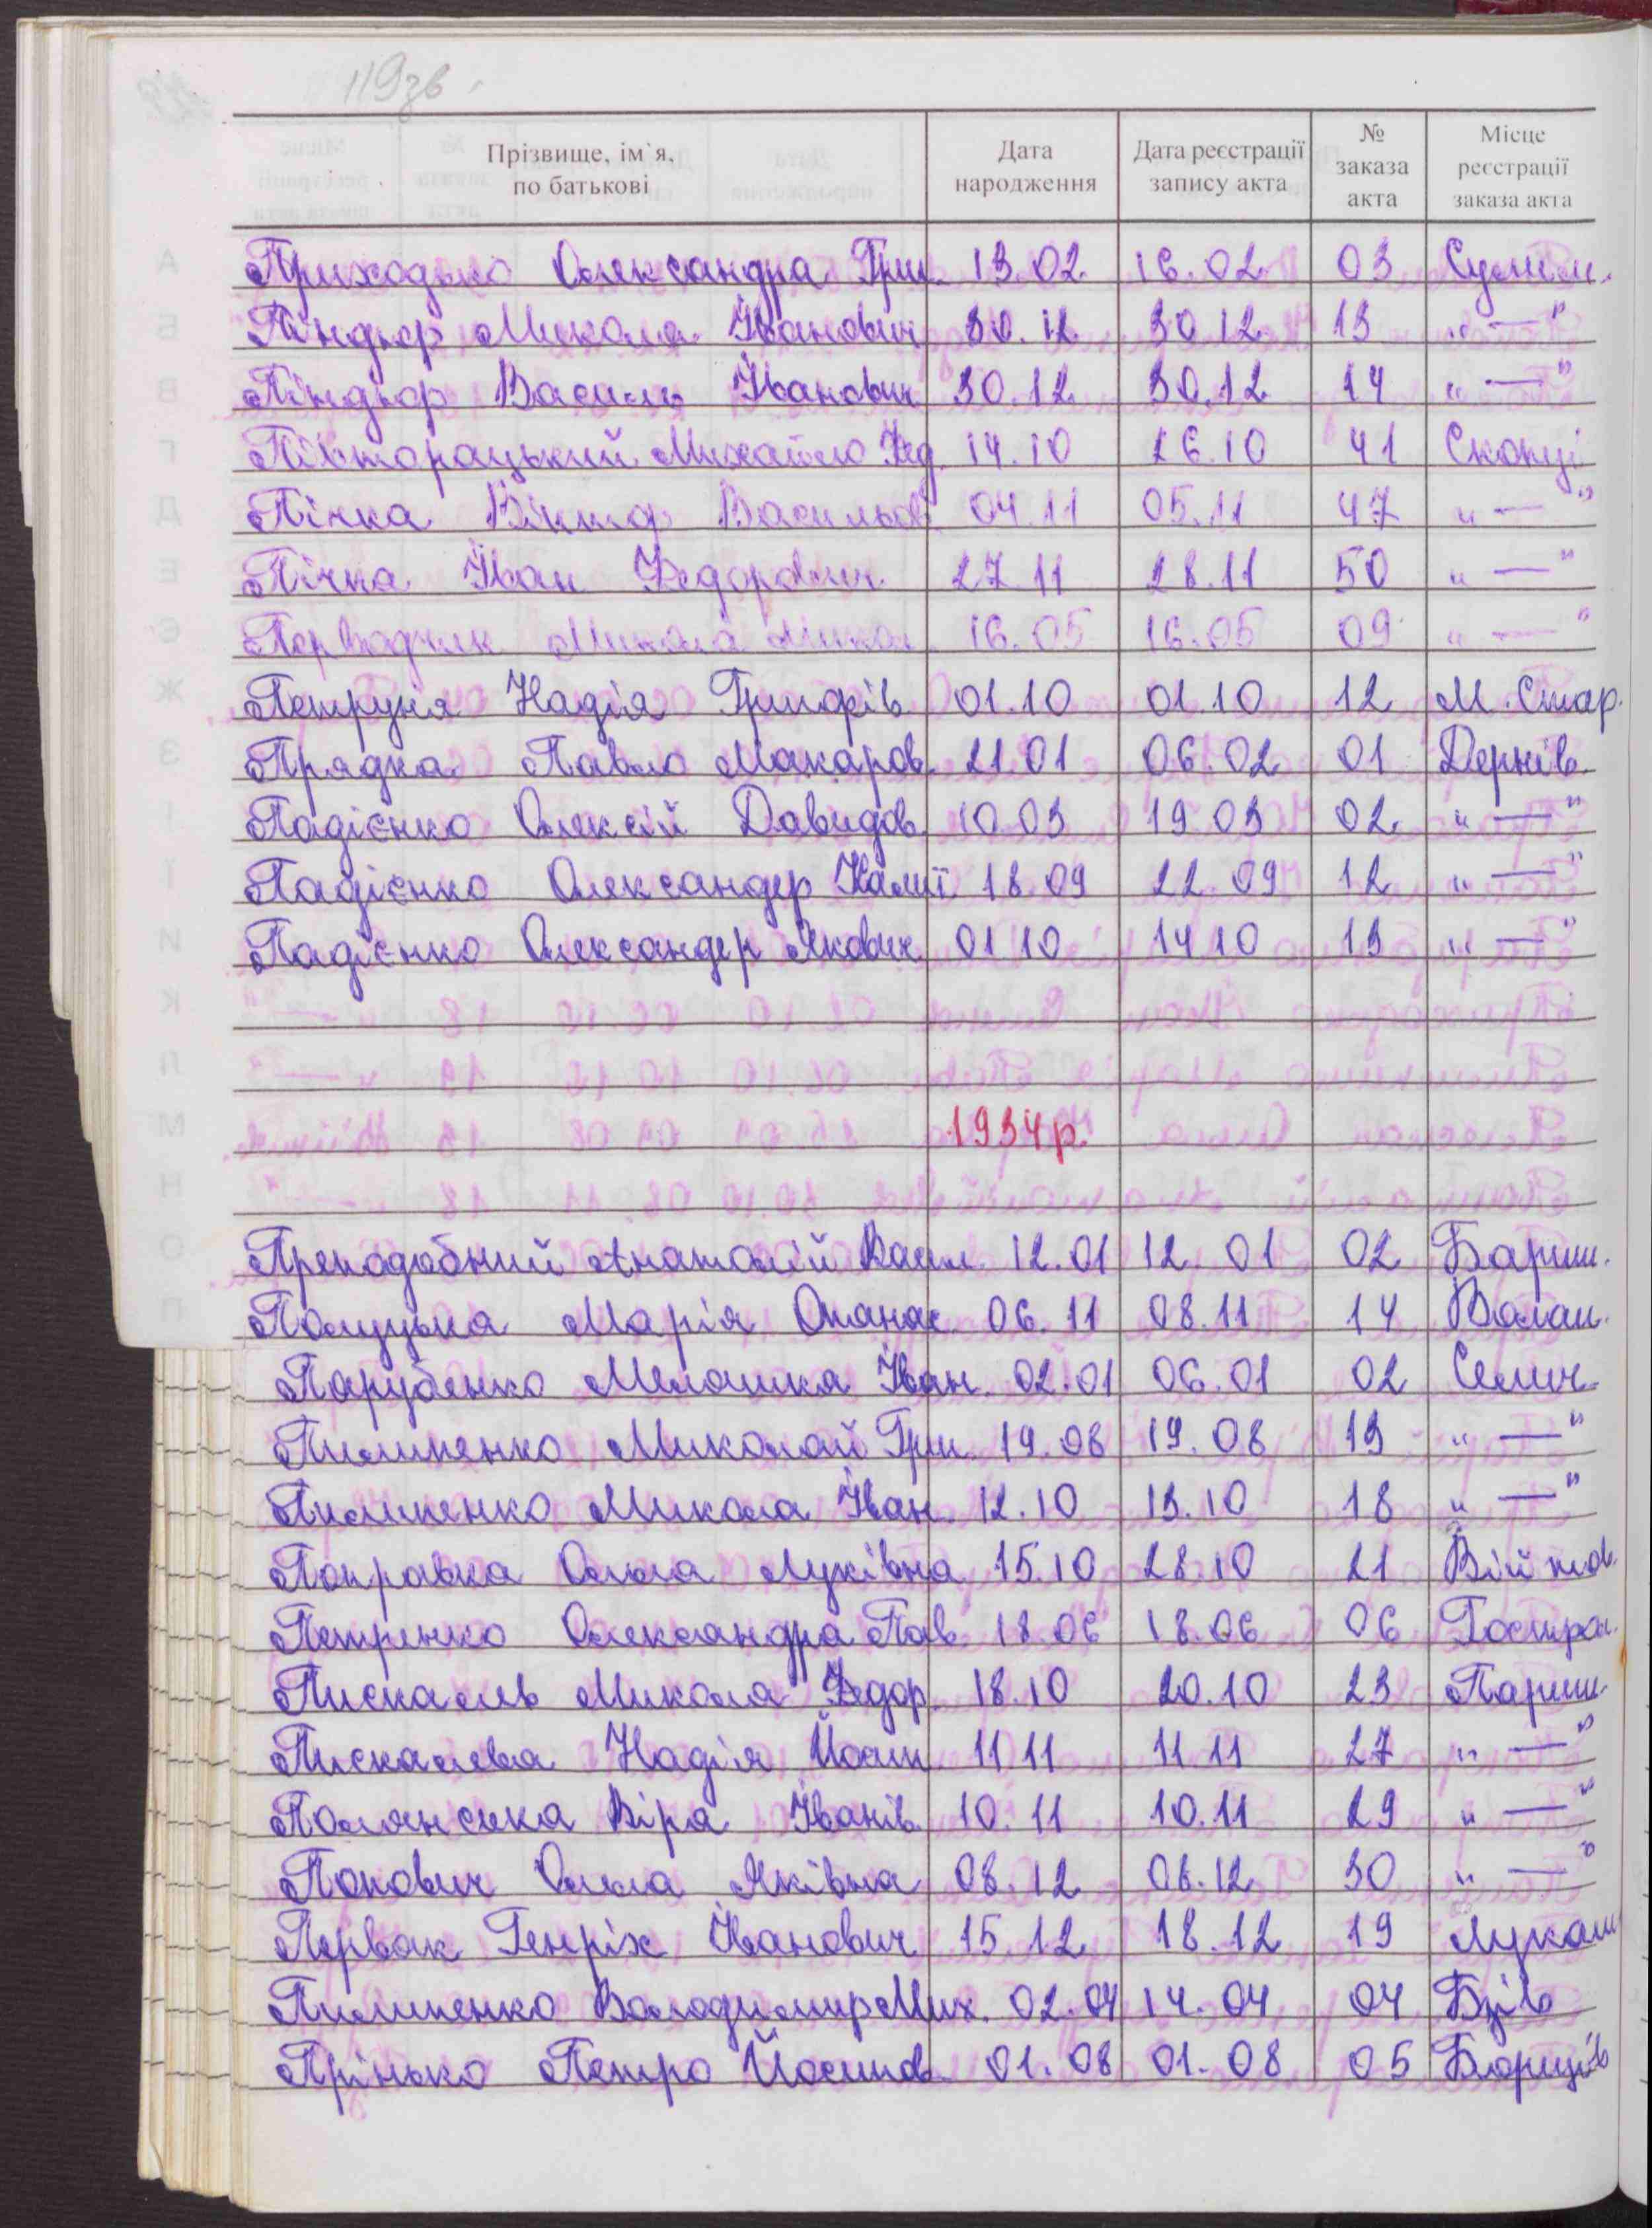 119зв.
Прізвище, ім`я, по батькові | Дата народження | Дата реєстрації запису акта | № заказа акта | Місце реєстрації заказа акта
Приходько Олександра Гри. 13.02. 16.02. 03 Сулим.
Піндюр Микола Іванович 30.12 30.12 13 "—"
Піндюр Василь Іванович 30.12 30.12 14 "—"
Півторацький Михайло Фед. 14.10 26.10 41 Скопці
Пічка Віктор Васильов. 04.11 05.11 47 "—"
Пічка Іван Федорович 27.11 28.11 50 "—"
Микола Микол. 16.05 16.05 09 "—"
Петруня Надія Григорів 01.10 01.10 12 М. Стар.
Прядка Павло Макаров. 21.01 06.02 01 Дернів.
Падієнко Олексій Давидов. 10.03 19.03 02. "—"
Падієнко Олександер 18.09 22.09 12 "—"
Падієнко Олександер Якович 01.10 14.10 13 "—"
1934р.
Преподобний Анатолій Васил. 12.01 12.01 02 Бариш.
Полуцька Марія Опанас. 06.11 08.11 14 Волош.
Парубенко Мелашка Іван. 02.01 06.01 02 Селич.
Пилипенко Миколай Гри. 19.08 19.08 13 "—"
Пилипенко Микола Іван. 12.10 13.10 18 "—"
Поправка Ольга Луківна 15.10 28.10 21 Війтов.
Петренко Олександра Пав. 18.06 18.06 06 Гостро.
Пискаль Микола Федор. 18.10 20.10 23 Париш.
Пискалева Надія Йосип 11.11 11.11 27 "—"
Полянська Віра Іванів. 10.11 10.11 29 "—"
Попович Ольга Яківна 08.12 08.12 30 "—"
Первак Генріх Іванович 15.12 18.12 19 Лукаш
Пилипенко Володимир Мих. 02.04 14.04 04 Бзів
Прінько Петро Йосипов. 01.08 01.08 05 Борщів